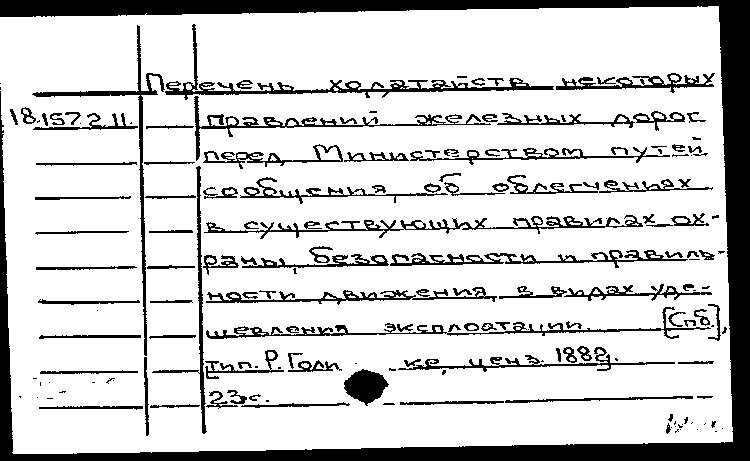 Перечень ходатайств некоторых
18.157.2.11. правлений железных дорог
перед Министерством путей
сообщения, об облегчениях
в существующих правилах ох-
раны, безопасности и правиль-
ности движения, в видах уде-
шевления эксплоатации. [Спб.],
тип. Р. Голике, ценз. 1882.
23с.